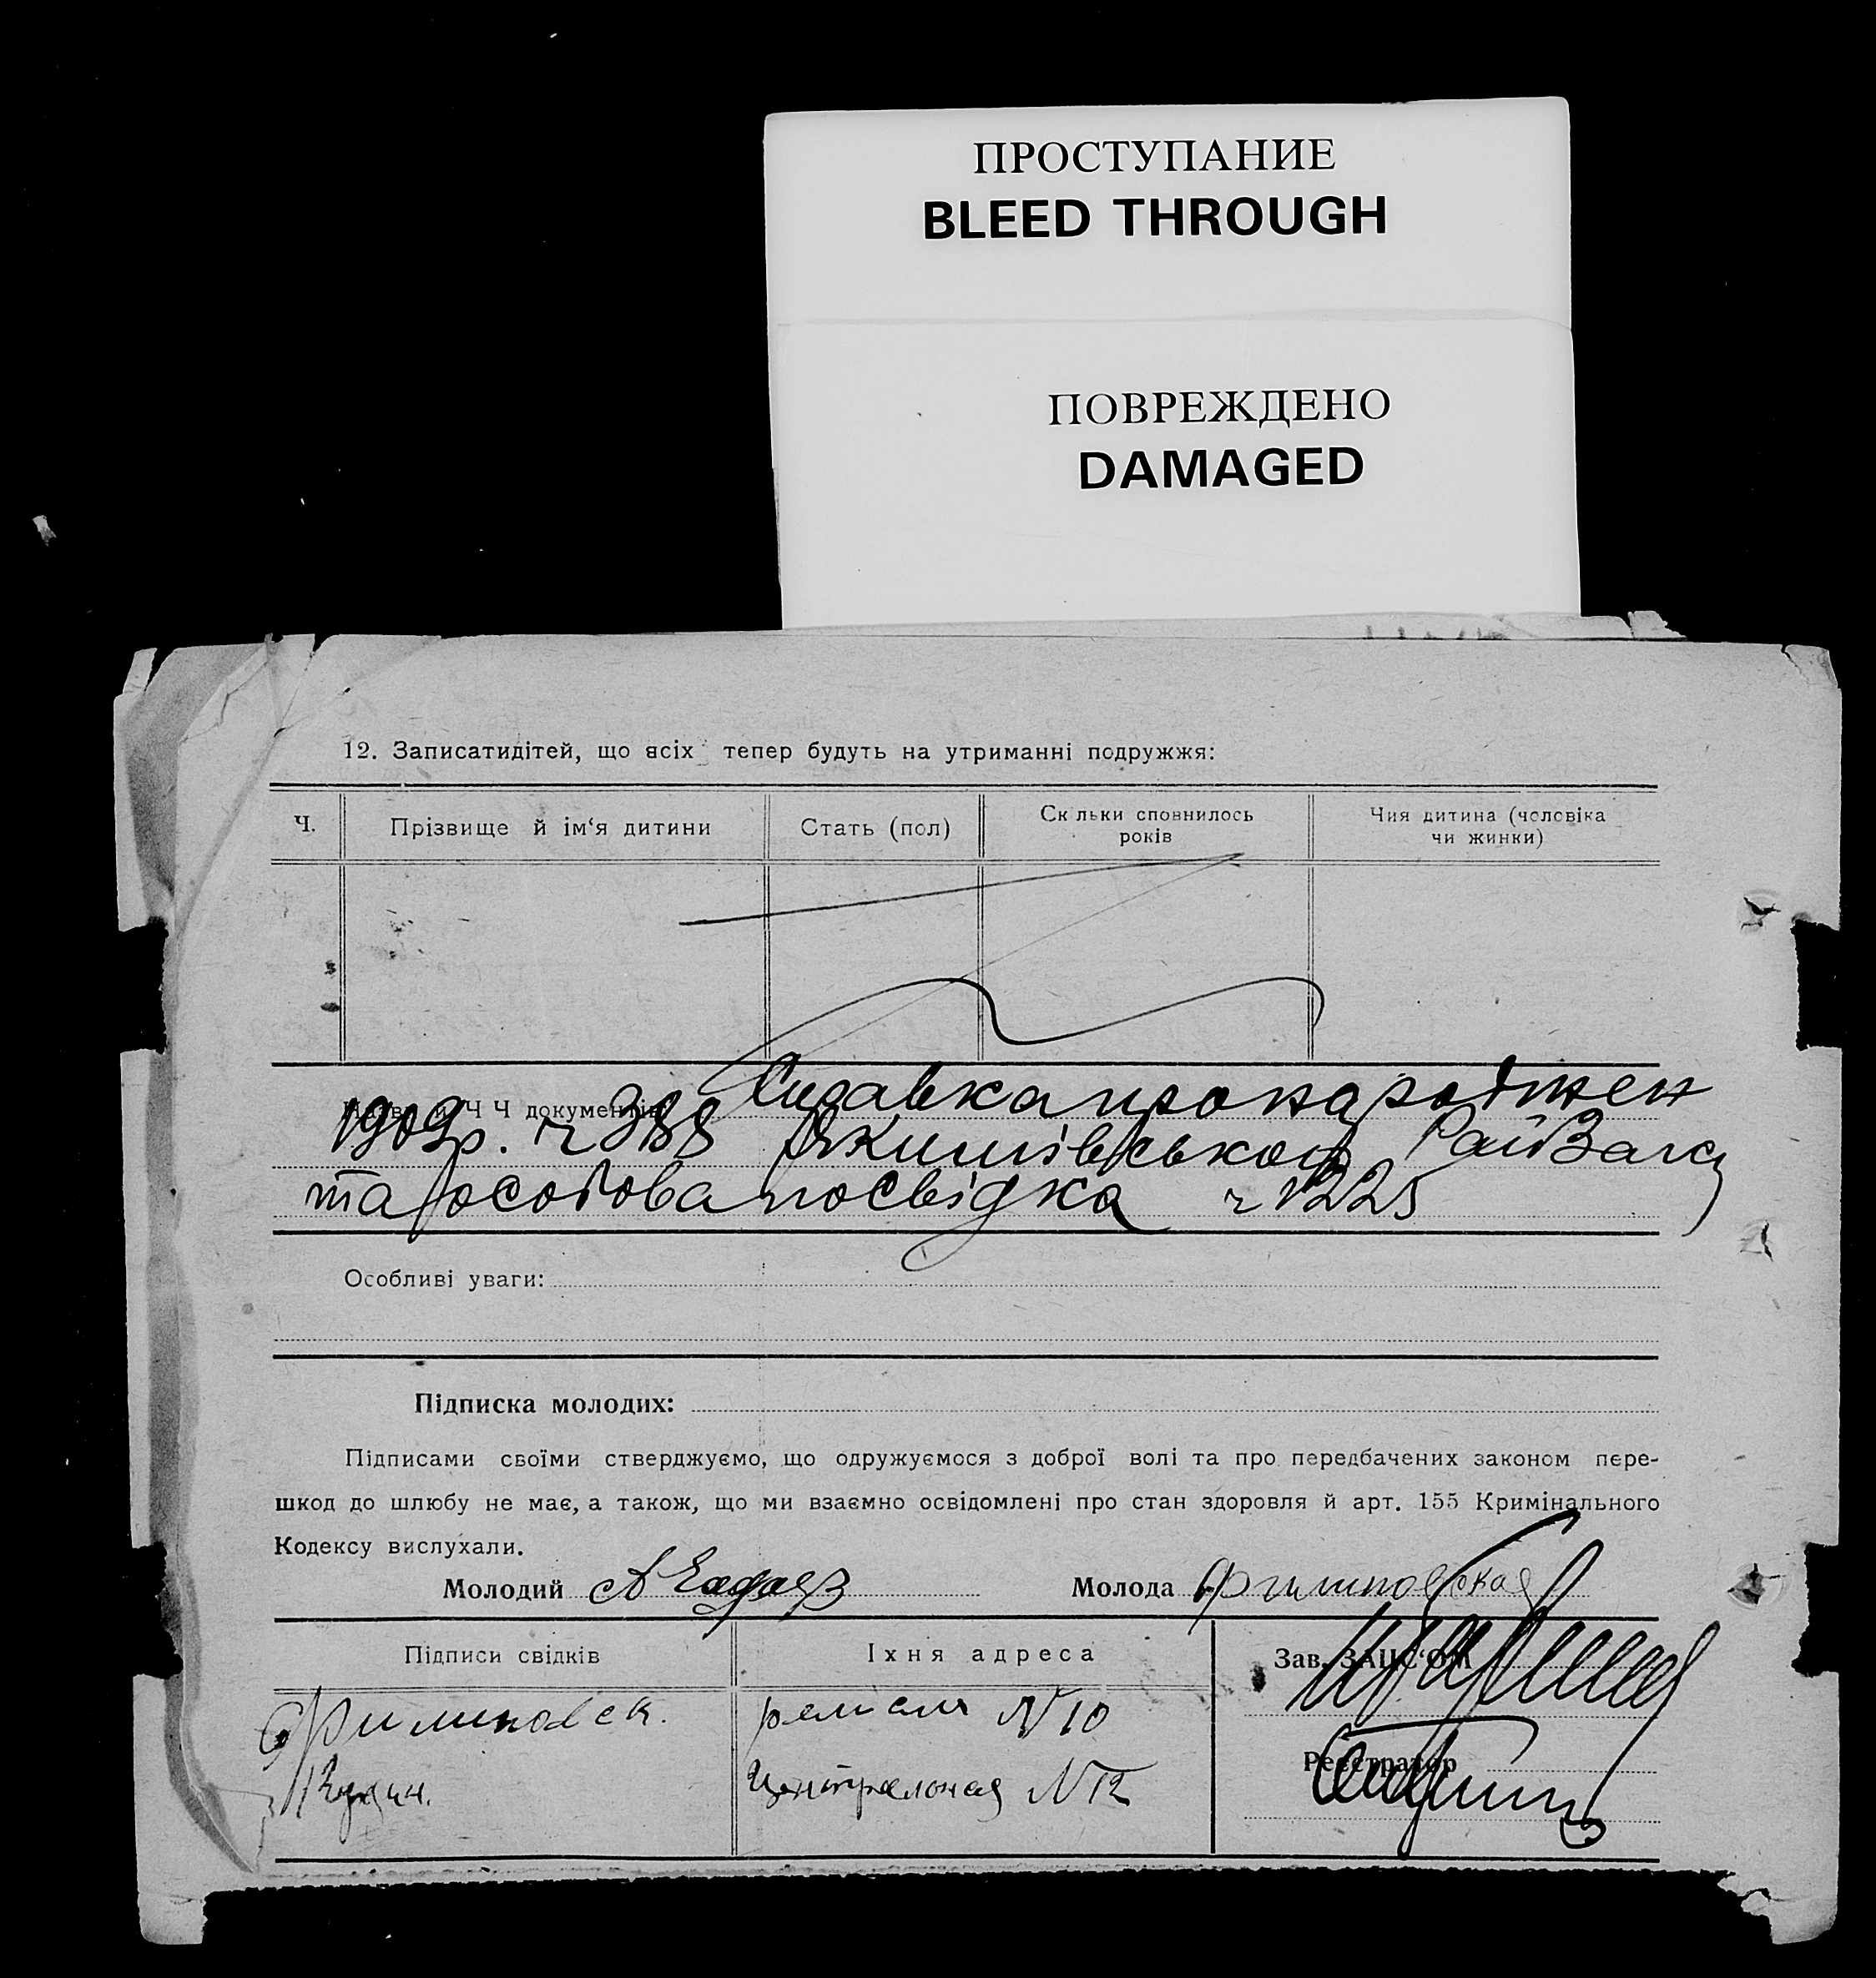 ПРОСТУПАНИЕ
BLEED THROUGH
ПОВРЕЖДЕНО
DAMAGED
12. Записатидітей, що всіх тепер будуть на утриманні подружжя:
Ч.
Прізвище й ім‘я дитини
Стать (пол)
Ск льки сповнилось
років
Чия дитина (чоловіка
чи жинки)
Справка про народжен
Ч Ч документів
1909р. ч 388 Якимівського РайЗагсу
та особова посвідка ч 1225
Особливі уваги:
Підписка молодих:
Підписами своїми стверджуємо, що одружуємося з доброї волі та про передбачених законом пере-
шкод до шлюбу не має, а також, що ми взаємно освідомлені про стан здоров­ля й арт. 155 Кримінального
Кодексу вислухали.
Молодий
Молода
Підписи свідків
Їхня адреса
Зав. ЗАГС‘ОМ
N 10
Центральная N 12
Реєстратор